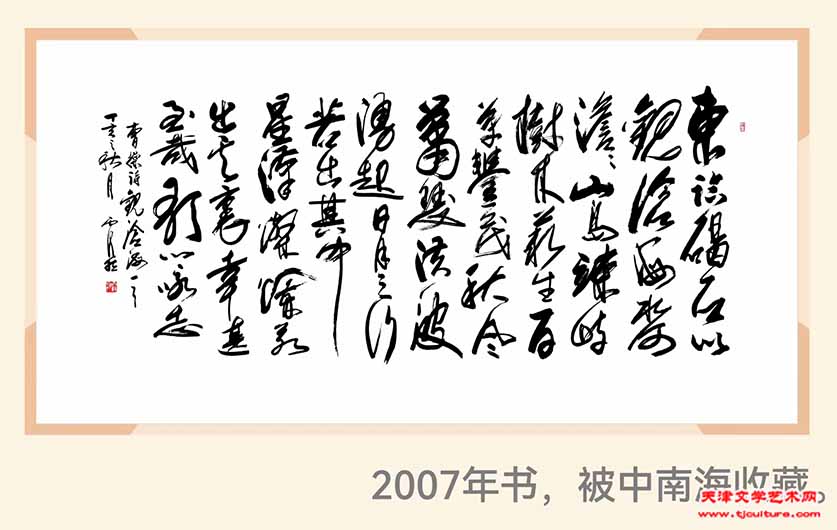 東臨碣石以
觀滄海水何
澹澹山島竦峙
樹木叢生百
草豐茂秋風
蕭瑟洪波
湧起日月之行
若出其中
星漢燦爛若
出其裏幸甚
至哉歌以詠志
曹操詩觀滄海一首
丁亥秋月
2007年书，被中南海收藏。
天津文学艺术网
www.tjculture.com